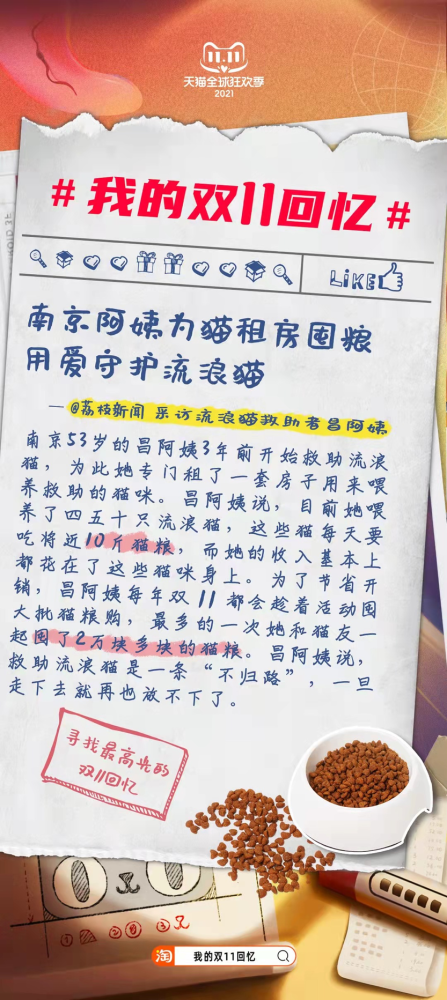 11.11
天猫全球狂欢季
2021
#我的双11回忆#
LiKE
南京阿姨为猫租房囤粮
用爱守护流浪猫
—@荔枝新闻 采访流浪猫救助者昌阿姨
南京53岁的昌阿姨3年前开始救助流浪
猫，为此她专门租了一套房子用来喂
养救助的猫咪。昌阿姨说，目前她喂
养了四五十只流浪猫，这些猫每天要
吃将近10斤猫粮，而她的收入基本上
都花在了这些猫咪身上。为了节省开
销，昌阿姨每年双11都会趁着活动囤
大批猫粮购，最多的一次她和猫友一
起囤了2万块多块的猫粮。昌阿姨说，
救助流浪猫是一条“不归路”，一旦
走下去就再也放不下了。
寻找最高光的
双11回忆
淘 我的双11回忆